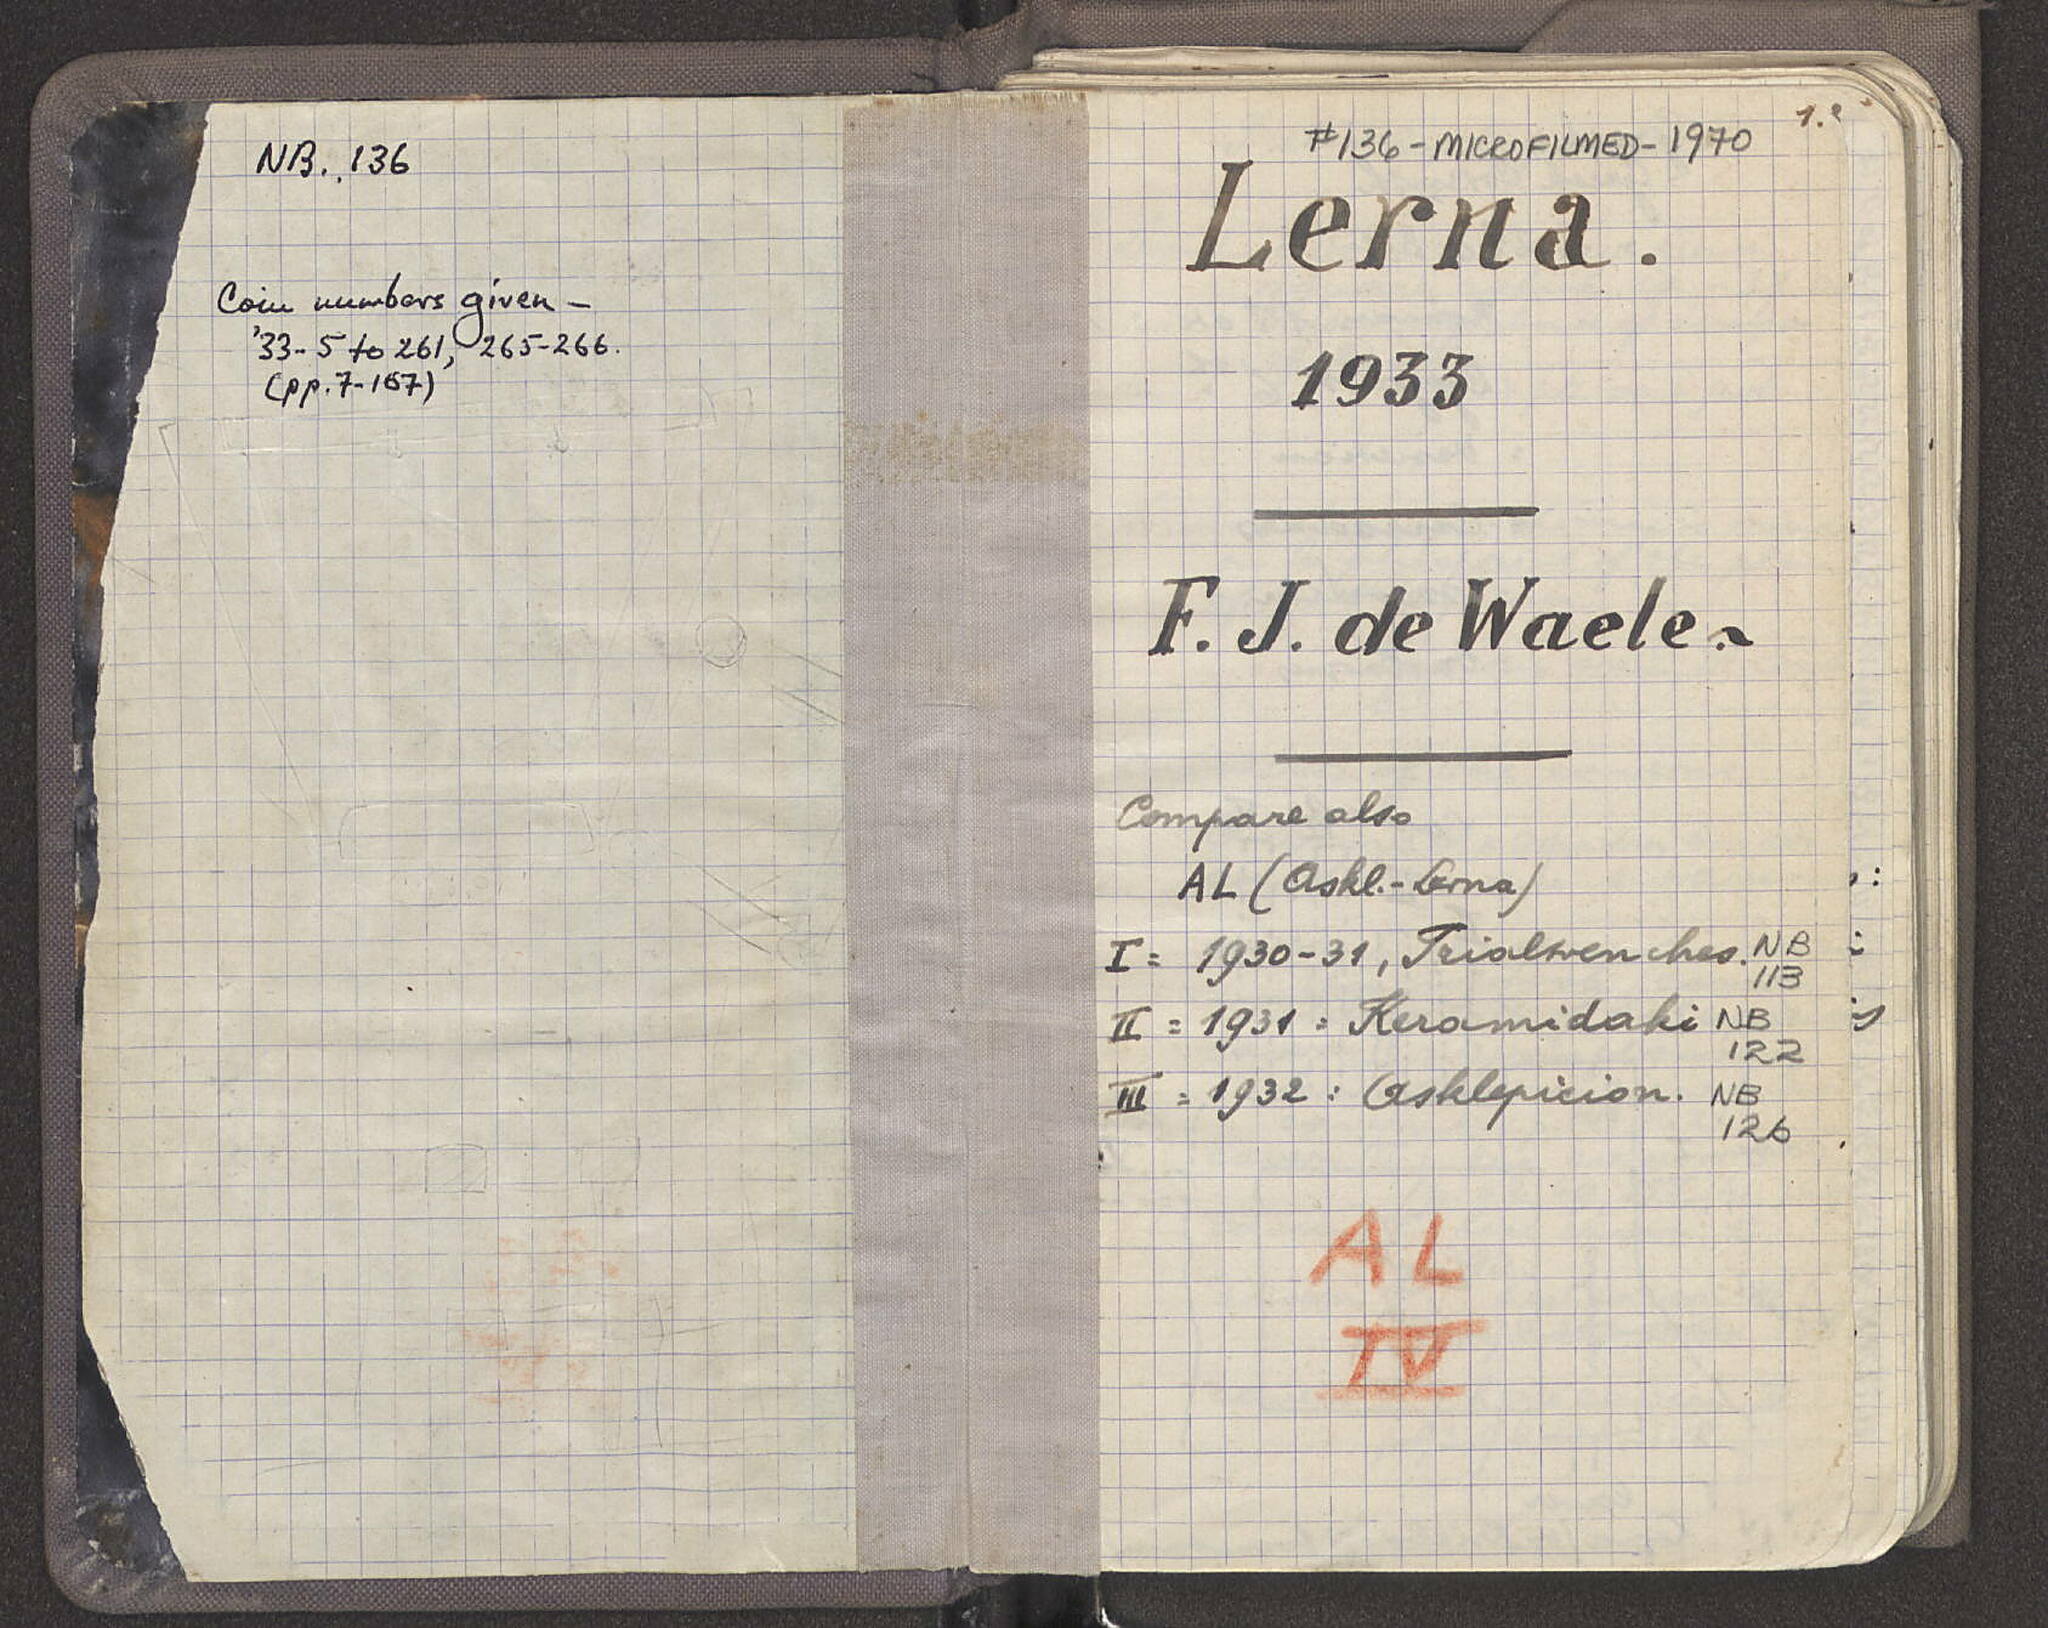 NB. 136
Coin numbers given –
'33-5 to 261, 265-266.
(pp. 7-167)
1.
#136 - MICROFILMED - 1970
Lerna.
1933
F. J. de Waele
Compare also
AL (Askl.-Lerna)
I = 1930-31, Trialtrenches. NB 113
II = 1931 : Keramidaki NB 122
III = 1932 : Asklepieion. NB 126
AL
IV